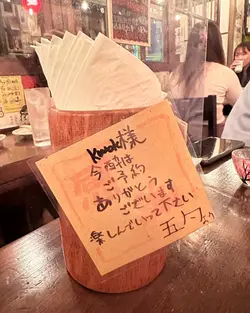 Kwok様
今宵は
ご予約
ありがとう
ございます
楽しんでいって下さい
五月より